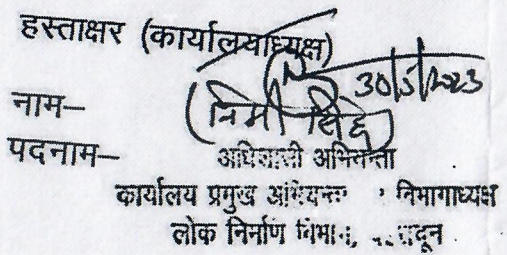 हस्ताक्षर (कार्यालयाध्यक्ष)
30/5/2023
नाम– (निमी सिंह)
पदनाम– अधिशासी अभियन्ता
कार्यालय प्रमुख अभियन्ता विभागाध्यक्ष
लोक निर्माण विभाग,